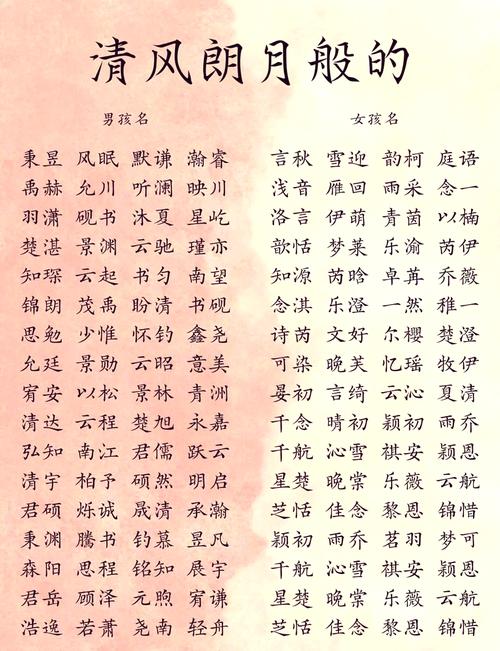 清风朗月般的
男孩名 女孩名
秉昱 风眠 默谦 瀚睿 言秋 雪迎 韵柯 庭语
禹赫 允川 听澜 映川 浅音 雁回 雨采 念一
羽潇 砚书 沐夏 星屹 洛言 伊萌 青茵 以楠
楚湛 景渊 云驰 瑾亦 歆恬 梦莱 乐渝 芮伊
知琛 云起 书匀 南望 知源 芮晗 卓苒 乔薇
锦朗 茂禹 盼清 书砚 念淇 乐澄 一然 稚一
思勉 少惟 怀钧 鑫尧 诗芮 文好 尔樱 楚澄
允廷 景勋 云昭 意美 可染 晚芙 忆瑶 牧伊
宥安 以松 景林 青洲 晏初 言绮 云沁 夏清
清达 云程 楚旭 永嘉 千念 晴初 颖初 雨乔
弘知 南江 君儒 跃云 千航 沁雪 祺安 颖恩
清宇 柏予 硕然 明启 星楚 晚棠 乐薇 云航
君硕 烁诚 晟清 承瀚 芝恬 佳念 黎恩 锦惜
秉渊 腾书 钧慕 昱凡 颖初 雨乔 茗羽 梦可
森阳 思程 铭知 展宇 千航 沁雪 祺安 颖恩
君岳 顾泽 元煦 宥谦 星楚 晚棠 乐薇 云航
浩逸 若萧 尧南 轻舟 芝恬 佳念 黎恩 锦惜